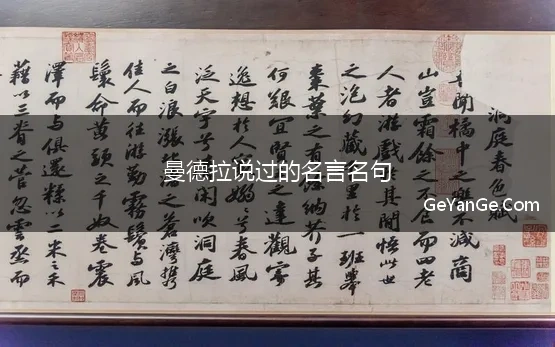 洞庭春色賦
聞橘中之樂不減商
山豈霜餘之不食而四老
人者游戲於其間悟此世
之泡幻藏千里於一班舉
棗葉之有餘納芥子其
何艱宜賢之達觀寄
逸想於人嫋嫋兮春風
泛天宇兮閑吹洞庭
之白浪漲渚之蒼灣攜
佳人而往游勤霧鬢與風
鬟命黃頭之千奴卷震
澤而與俱還糅以二米之禾
藉以三脊之菅忽雲烝而
曼德拉说过的名言名句
GeYanGe.Com